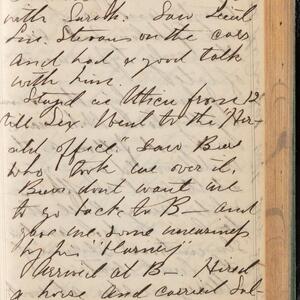 with Sarah. Saw Lieut
Stevens on the cars
and had a good talk
with him.
Stayed in Utica from 12
till Six. Went to the "Her-
ald office." Saw Bees
who took me over it.
Bees dont want me
to go back to B— and
gave me some uneasiness
by his "blarney"
Arrived at B— Hired
a horse and carried Sab-